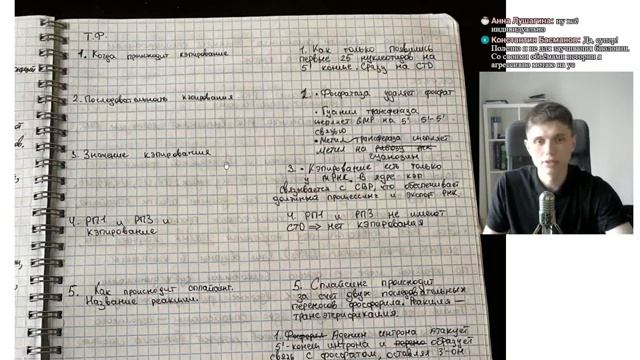 Т.Ф.
1. Когда происходит кэпирование
1. Как только появились
первые 25 нуклеотидов на
5' конце. Сразу на CTD
2. Последовательность кэпирования
2. • Фосфатаза удаляет фосфат
• Гуанил трансфераза
цепляет GMP на 5' 5'-5'
связью
• Метил трансфераза цепляет
метил на
гуанозин
3. Значение кэпирования
3. • Кэпирование есть только
у мРНК. В ядре кэп
связывается с CBP, что обеспечивает
процессинг и экспорт РНК
4. РП1 и РП3 и
кэпирование
4. РП1 и РП3 не имеют
CTD => нет кэпирования
5. Как происходит сплайсинг.
Название реакции.
5. Сплайсинг происходит
за счёт двух последовательных
переносов фосфорила. Реакция —
трансэтерификация.
1. Аденин интрона атакует
5'-конец интрона и образует
связь с фосфатом, оставляя 3'-OH
Анна Лушагина: ну всё
индивидуально
Константин Басманов: Да, супер!
Полезно и не для заучивания биологии.
Со своими объёмами истории я